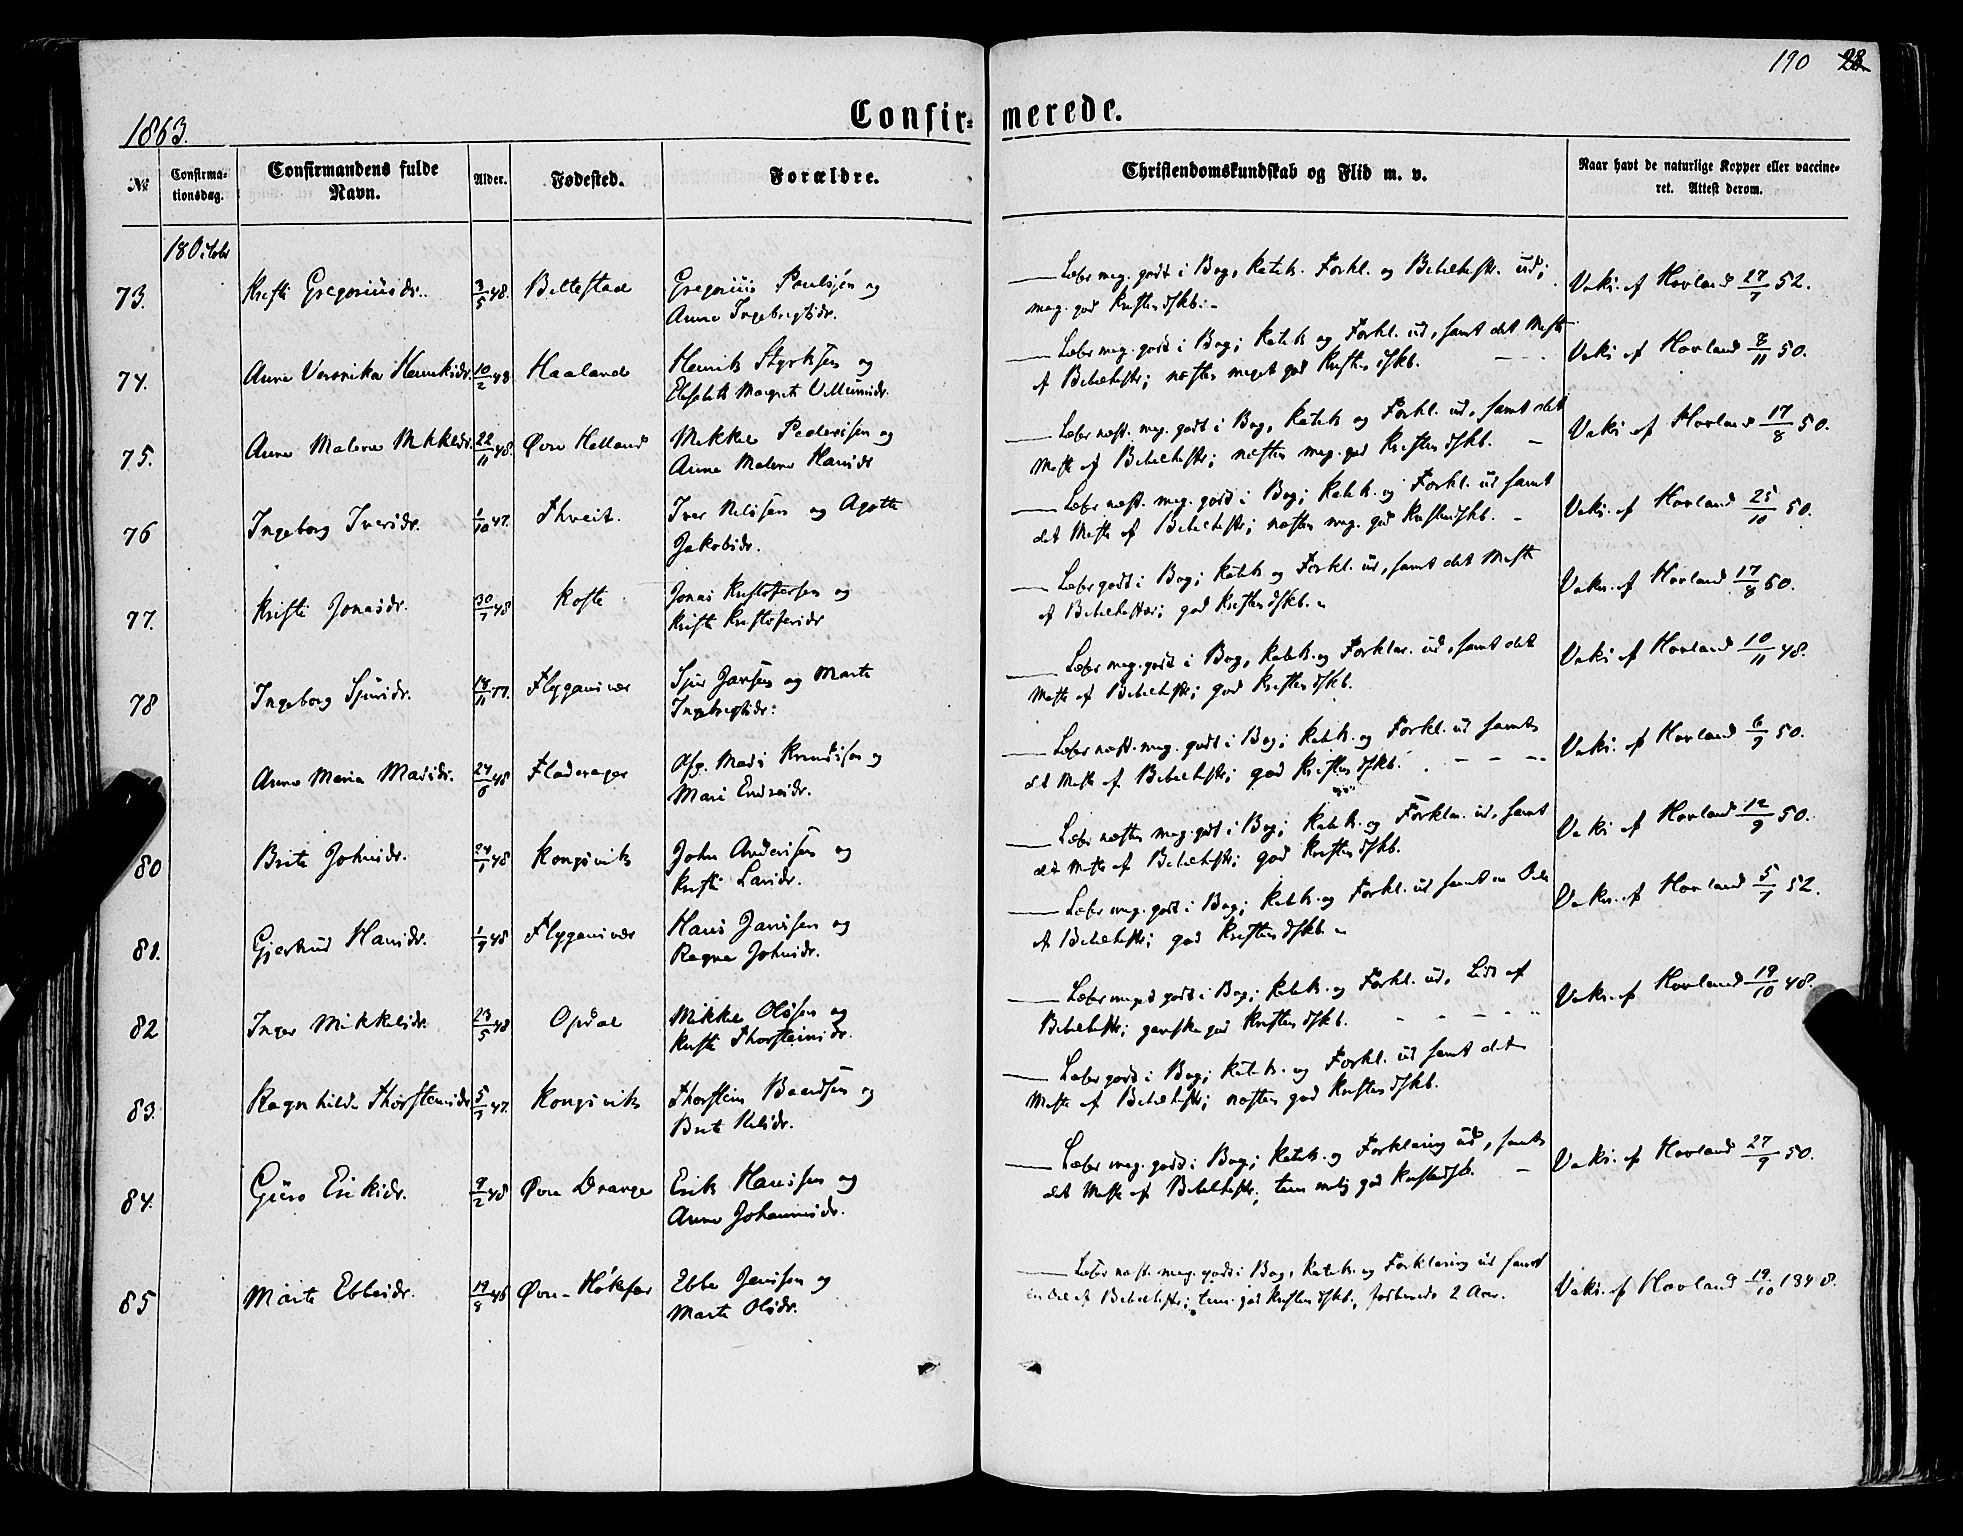 190 28
Confirmerede.
1863.
No
Confirmationsdag.
Confirmandens fulde Navn.
Alder.
Fødested.
Forældre.
Christendomskundskab og Flid m. v.
Naar havt de naturlige Kopper eller vaccineret. Attest derom.
18 Octobr
73. Kristi Gregoriusdr. 3/5 48. Bellestad Gregorius Paulsen og
Anna Ingebrigtsdr.
Læser meg. godt i Bog, Katek. Forkl. og Bibelhistr. ud;
meg. god Kristendskb. Vaks. af Hovland 27/7 52.
74. Anna Veronika Henriksdr. 10/2 48 Haaland Henrik Styrksen og
Elisabeth Margrete Villumsdr.
Læser meg. godt i Bog; Katek og Forkl. ud, samt det Meste
af Bibelhistr; næsten meget god Kristendskb. Vaks af Hovland 7/11 50.
75. Anna Malene Mikkelsdr. 22/11 48. Øvre Helland Mikkel Pedersen og
Anna Malene Hansdr
Læser næst. meg. godt i Bog, Katek og Forkl. ud, samt det
Meste af Bibelhistr; næsten meg. god Kristendskb. Vaks af Hovland 17/8 50.
76 Ingeborg Iversdr. 1/10 47. Thveit. Iver Nilssen og Agathe
Jakobsdr.
Læser næst. meg. godt i Bog; Katek. og Forkl. ud samt
det Meste af Bibelhistr; næsten meg. god Kristendskb. Vaks. af Hovland 25/10 50.
77. Kristi Jonasdr. 30/7 48 Kofte Jonas Kristofersen og
Kristi Kristofersdr
Læser godt i Bog; Katek og Forkl. ud, samt det Meste
af Bibelhistr; god Kristendskb. Vaks. af Hovland 17/8 50.
78 Ingeborg Sjursdr. 18/11 47. Flygansvær Sjur Jansen og Marte
Ingebrigtsdr.
Læser meg. godt i Bog, Katek. og Forklar. ud, samt det
Meste af Bibelhistr; god Kristendskb. Vaks af Hovland 10/11 48.
Anna Maria Madsdr. 24/6 48 Fladerager Afg. Mads og
Mari Endresdr.
Læser næst. meg. godt i Bog; Katek. og Forkl. ud samt
det Meste af Bibelhistr; god Kristendskb. Vaks. af Hovland 6/9 50.
80 Brite Johnsdr. 24/1 48 Kongsvik John Andersen og
Kristi Larsdr.
Læser næsten meg. godt i Bog; Katek. og Forklar. ud, samt
det Meste af Bibelhistr; god Kristendskb. Vaks af Hovland 12/9 50.
81. Gjertrud Hansdr. 1/9 48 Flygansvær Hans Jansen og
Ragna Johnsdr.
Læser meg. godt i Bog; Katek. og Forkl. ud samt en Del
af Bibelhistr; god Kristendskb. Vaks. af Hovland 5/7 52.
82 Inger Mikkelsdr. 23/5 48 Opdal Mikkel Olssen og
Kristi Thorsteinsdr.
Læser meget godt i Bog; Katek. og Forkl. ud, Lidt af
Bibelhistr; ganske god Kristendskb. Vaks. af Hovland 19/10 48.
83. Ragnhilde Thorsteinsdr 5/7 47. Kongsvik Thorstein Baardsen og
Brite Nilsdr.
Læser godt i Bog; Katek. og Forkl. ud samt det
Meste af Bibelhistr; næsten god Kristendskb.
84. Guro Eriksdr. 9/2 48 Øvre Drange Erik Hansen og
Anna Johannesdr.
Læser meg. godt i Bog; Katek. og Forklaring ud, samt
det Meste af Bibelhistr; god Kristendskb. Vaks. af Hovland 27/9 50.
85 Marte Ebbesdr. 19/8 46 Øvre-Høkefar Ebbe Jensen og
Marte Olsdr.
Læser næst. meg. godt i Bog, Katek. og Forklaring ud samt
en Del af Bibelhistr; god Kristendskb. 2 Aar. Vaks. af Hovland 19/10 1848.